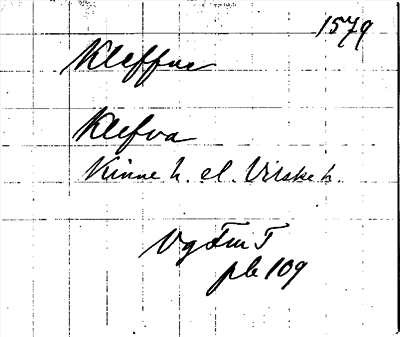 1579
Kleffue
Klefva
Kinne h. el. Vilske h.
Vg Fm T
pb 109